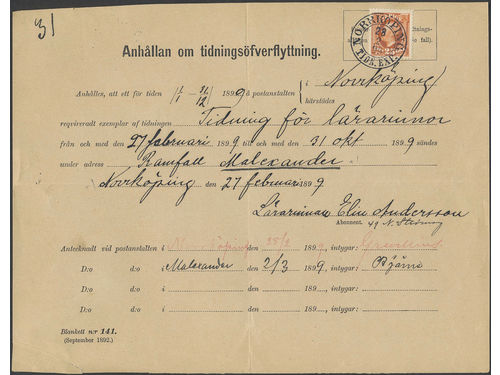 31
Anhållan om tidningsöfverflyttning.
NORRKÖPING
28
TIDN. EXP.
Anhålles, att ett för tiden 1/1 - 31/12 1899 å postanstalten i Norrköping
härstädes
reqvireradt exemplar af tidningen Tidning för lärarinnor
från och med den 27 februari 1899 till och med den 31 okt 1899 sändes
under adress Ramfall Malexander.
Norrköping den 27 februari 1899
Lärarinnan Elin Andersson
Abonnent. 49 N. Strömg
Antecknadt vid postanstalten i Norrköping den 28/2 1899, intygar:
D:o d:o i Malexander den 2/3 1899, intygar: Björns
D:o d:o i den 189 , intygar:
D:o d:o i den 189 , intygar:
Blankett n:r 141.
(September 1892.)